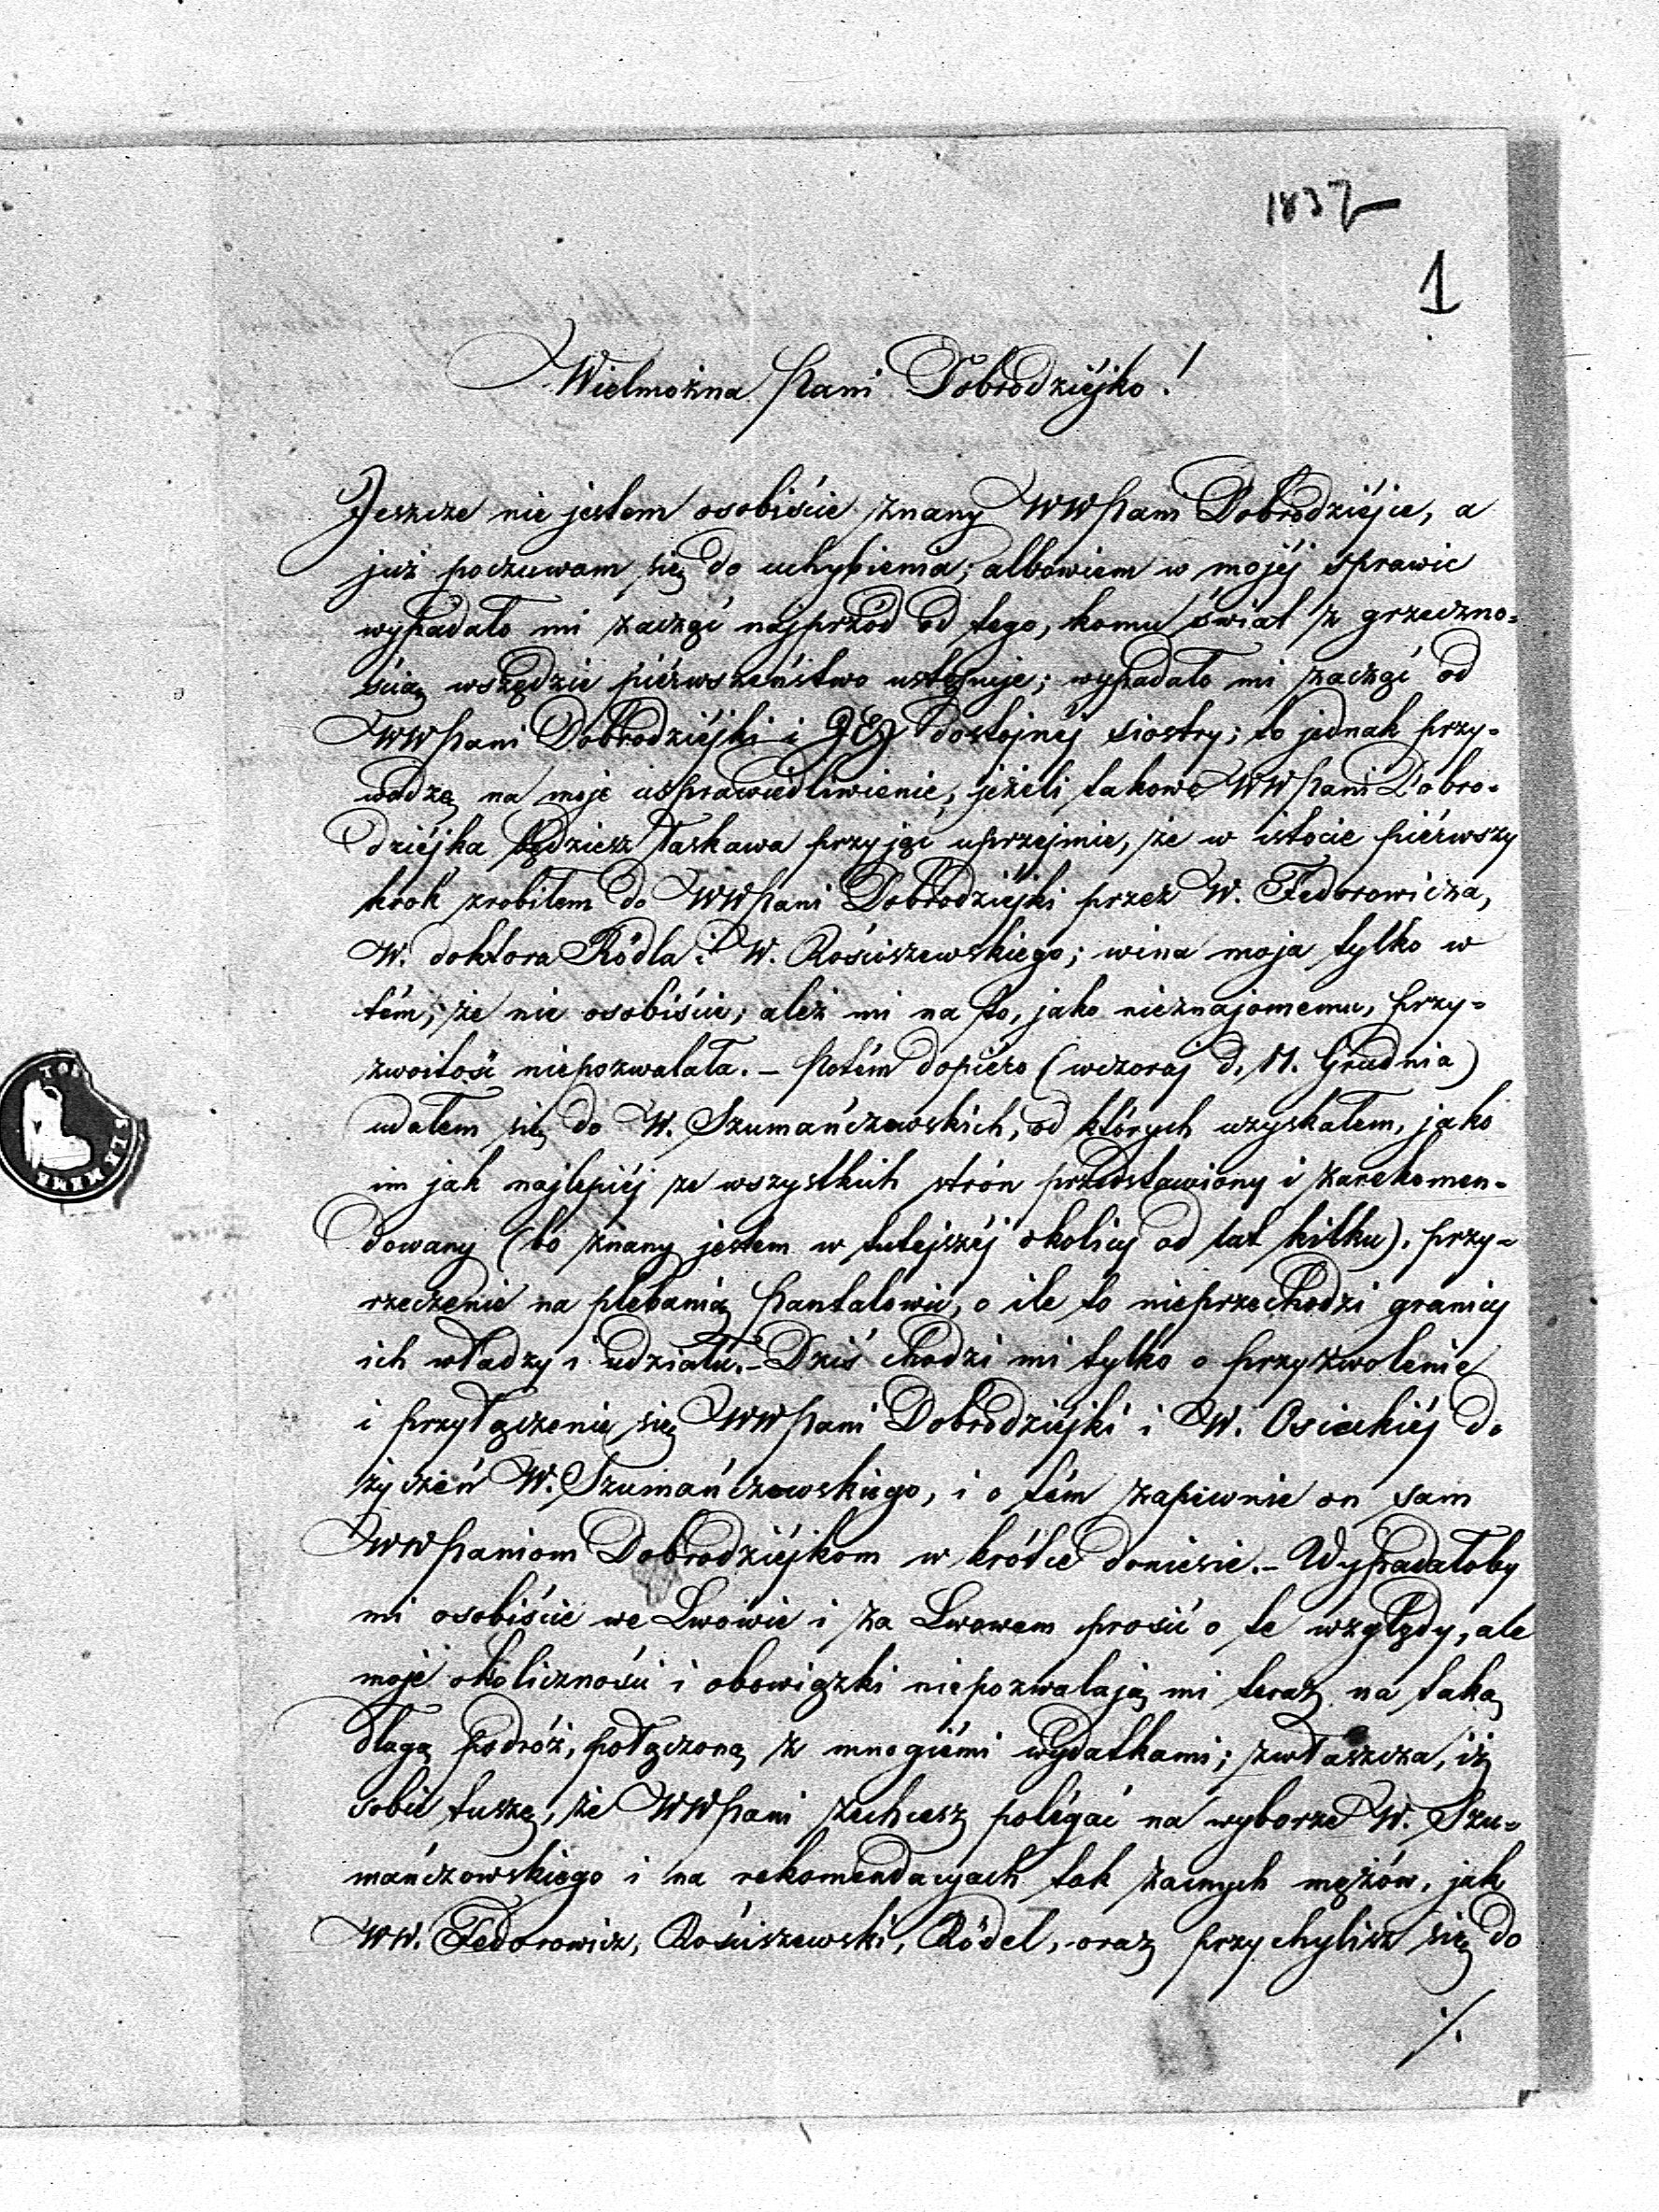 1837
1
Wielmożna Pani Dobrodziéjko!
Jeszcze nie jestem osobiście znany WWPani Dobrodziéjce, a
już poczuwam się do uchybienia; albowiem w mojéj sprawie
wypadało mi zacząć najprzód od tego, komu świat z grzeczno-
ścią wszędzie piérwszeństwo ustępuje; wypadało mi zacząć od
WWPani Dobrodziéjki i Jéj dostojnéj siostry; to jednak przy-
wodzę na moje usprawiedliwienie, jeżeli takowe WWPani Dobro-
dziéjka będziesz łaskawa przyjąć uprzejmie, że w istocie piérwszy
krok zrobiłem do WWPani Dobrodziéjki przez W. Fedorowicza,
W. doktora Rödla i W. Rościszewskiego; wina moja tylko w
tém, że nie osobiście; ależ mi na to, jako nieznajomemu, przy-
zwoitość niepozwalała. – Potém dopiéro (wczoraj d. 11. Grudnia)
udałem się do W. Szumańczowskich, od których uzyskałem, jako
im jak najlepiéj ze wszystkich strón przedstawiony i zarekomen-
dowany (bo znany jestem w tutejszéj okolicy od lat kilku), przy-
rzeczenie na plebanią Pantalowic, o ile to nieprzechodzi granicy
ich władzy i udziału. – Dziś chodzi mi tylko o przyzwolenie
i przyłączenie się WWPani Dobrodziejki i W. Osieckiéj do
życzeń W. Szumańczowskiego, i o tém zapewnie on sam
WWPaniom Dobrodziéjkom w krótce doniesie. – Wypadałoby
mi osobiście we Lwowie i za Lwowem prosić o te względy, ale
moje okoliczności i obowiązki niepozwalają mi teraz na taką
długą podróż, połączoną z mnogiémi wydatkami; zwłaszcza, iż
sobie tuszę, że WWPani zechcesz polégać na wyborze W. Szu-
mańczowskiego i na rekomendacyach tak zacnych mężów, jak
WW. Fedorowicz, Rościszewski, Rödel, oraz przychylisz się do
./.